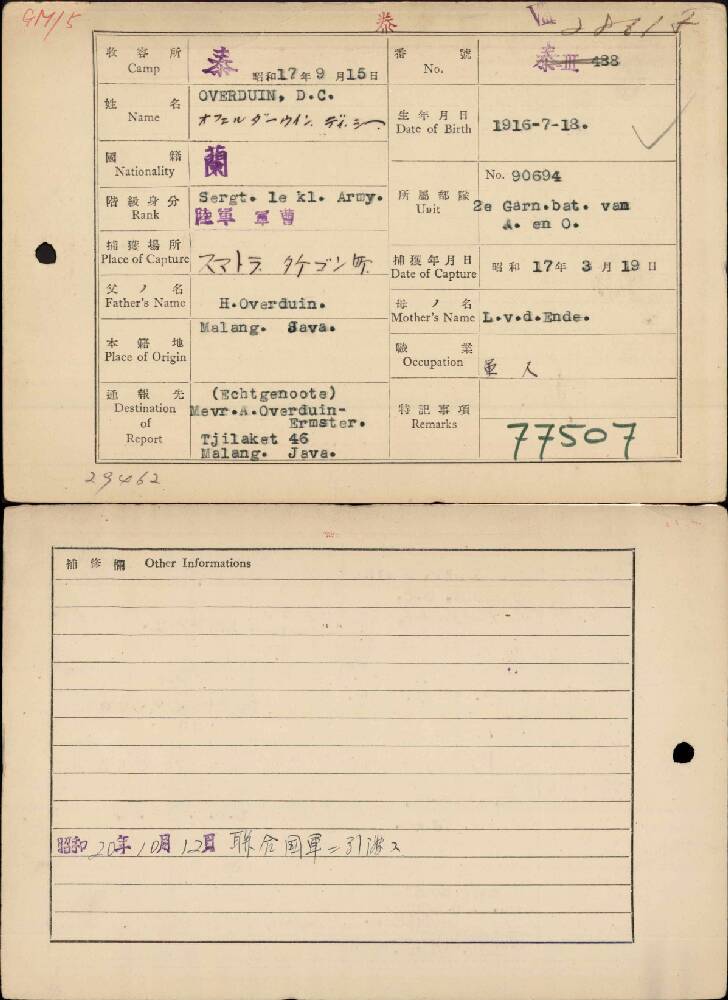 GM/5
泰
VIII
收容所 Camp 泰 昭和17年9月15日
番號 No. 泰III 433
姓名 Name OVERDUIN, D.C.
生年月日 Date of Birth 1916-7-18.
國籍 Nationality 蘭
階級身分 Rank Sergt. 1e kl. Army.
陸軍 軍曹
所屬部隊 Unit No. 90694
2e Garn.bat. van
A. en O.
捕獲場所 Place of Capture スマトラ タケゴン町
捕獲年月日 Date of Capture 昭和 17年 3月 19日
父ノ名 Father's Name H.Overduin.
母ノ名 Mother's Name L.v.d.Ende.
本籍地 Place of Origin Malang. Java.
職業 Occupation 軍人
通報先 Destination of Report (Echtgenoote)
Mevr.A.Overduin-
Ermster.
Tjilaket 46
Malang. Java.
特記事項 Remarks 77507
29462
補修欄 Other Informations
昭和20年10月12日 聯合國軍ニ引渡ス